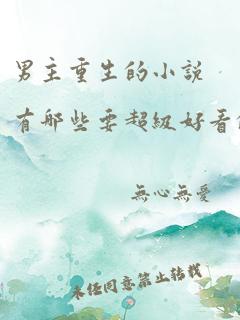 男主重生的小說
有哪些要超級好看
無心無愛
未任同意禁止转载